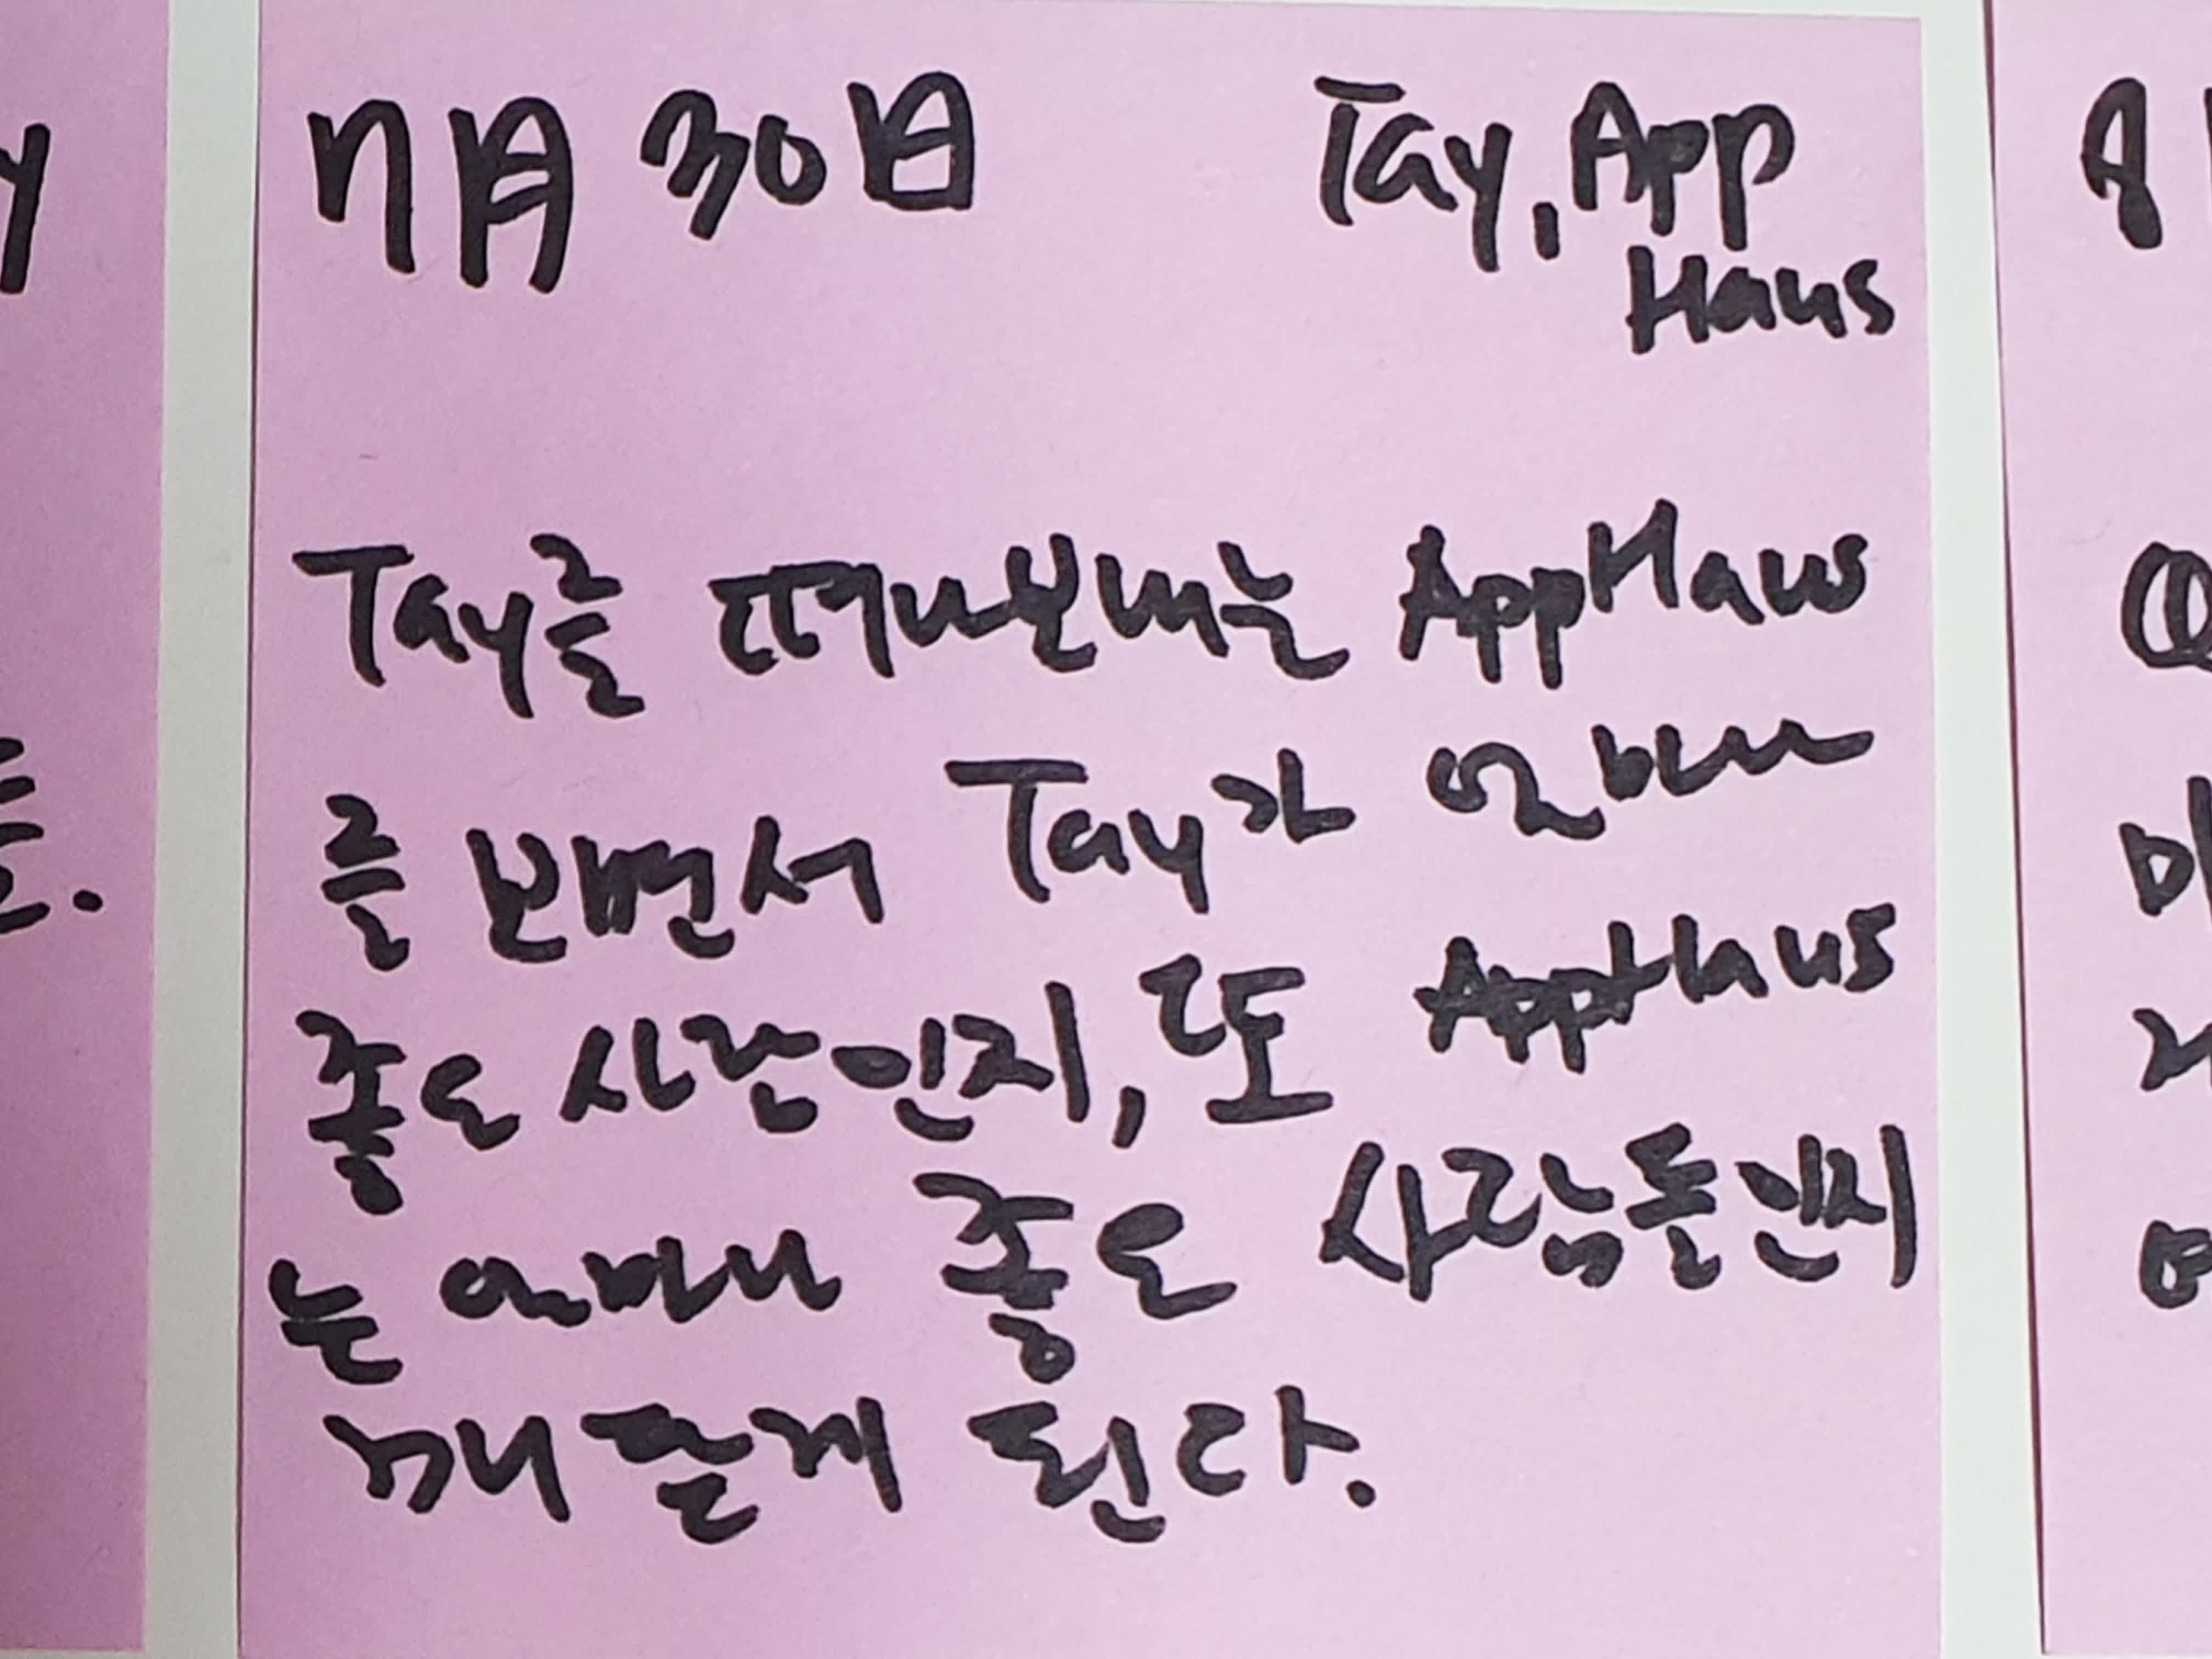 7月 30日 Tay, App
Haus
Tay를 떠나보내는 AppHaus
를 보면서 Tay가 얼마나
좋은 시간인지, 또 AppHaus
는 얼마나 좋은 사람들인지
깨닫게 된다.